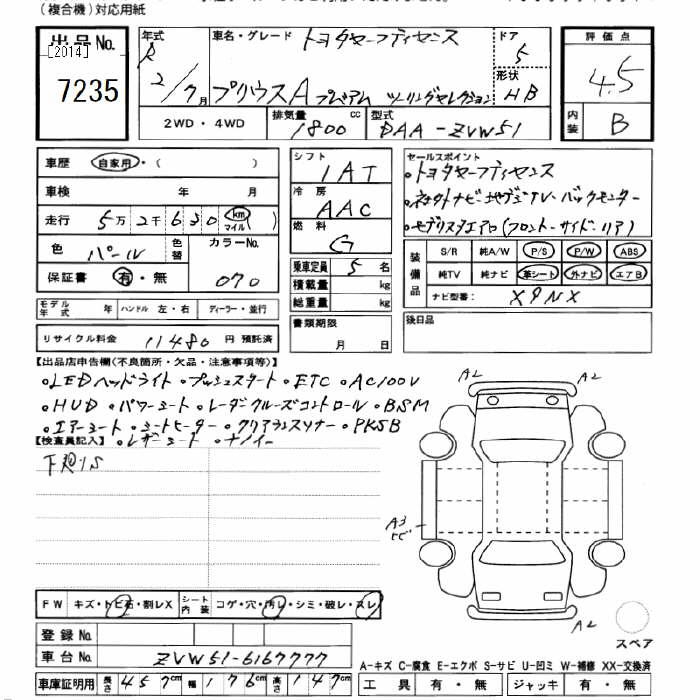 (複合機)対応用紙
出品No.
[2014]
7235
年式
R
2/7月
車名・グレード
トヨタセーフティセンス
プリウスA プレミアム ツーリングセレクション
ドア
5
形状
HB
評価点
4.5
内装
B
2WD・4WD
排気量 1800 cc
型式 DAA-ZVW51
車歴 自家用・( )
車検 年 月
走行 5万2千630 km マイル
色 パール 色替
カラーNo. 070
保証書 有・無
シフト
1AT
冷房
AAC
燃料
G
乗車定員 5名
積載量 kg
総重量 kg
セールスポイント
・トヨタセーフティセンス
・社外ナビ 地デジTV・バックモニター
・モデリスタエアロ(フロント・サイド・リア)
装備品
S/R 純A/W P/S P/W ABS
純TV 純ナビ 革シート 外ナビ エアB
ナビ型番: X9NX
モデル年式 年 ハンドル 左・右 ディーラー・並行
リサイクル料金 11480 円 預託済
書類期限
月 日
後日品
【出品店申告欄(不良箇所・欠品・注意事項等)】
・LEDヘッドライト・プッシュスタート・ETC・AC100V
・HUD・パワーシート・レーダークルーズコントロール・BSM
・エアーシート・シートヒーター・クリアランスソナー・PKSB
【検査員記入】・レザーシート・ナノイー
下廻りS
A2 A2
A3
トビ
A2
スペア
FW キズ・トビ石・割レX シート内装 コゲ・穴・汚レ・シミ・破レ・スレ
登録No.
車台No. ZVW51-6167777
車庫証明用 長さ 457cm 幅 176cm 高さ 147cm
A-キズ C-腐食 E-エクボ S-サビ U-凹ミ W-補修 XX-交換済
工具 有・無 ジャッキ 有・無